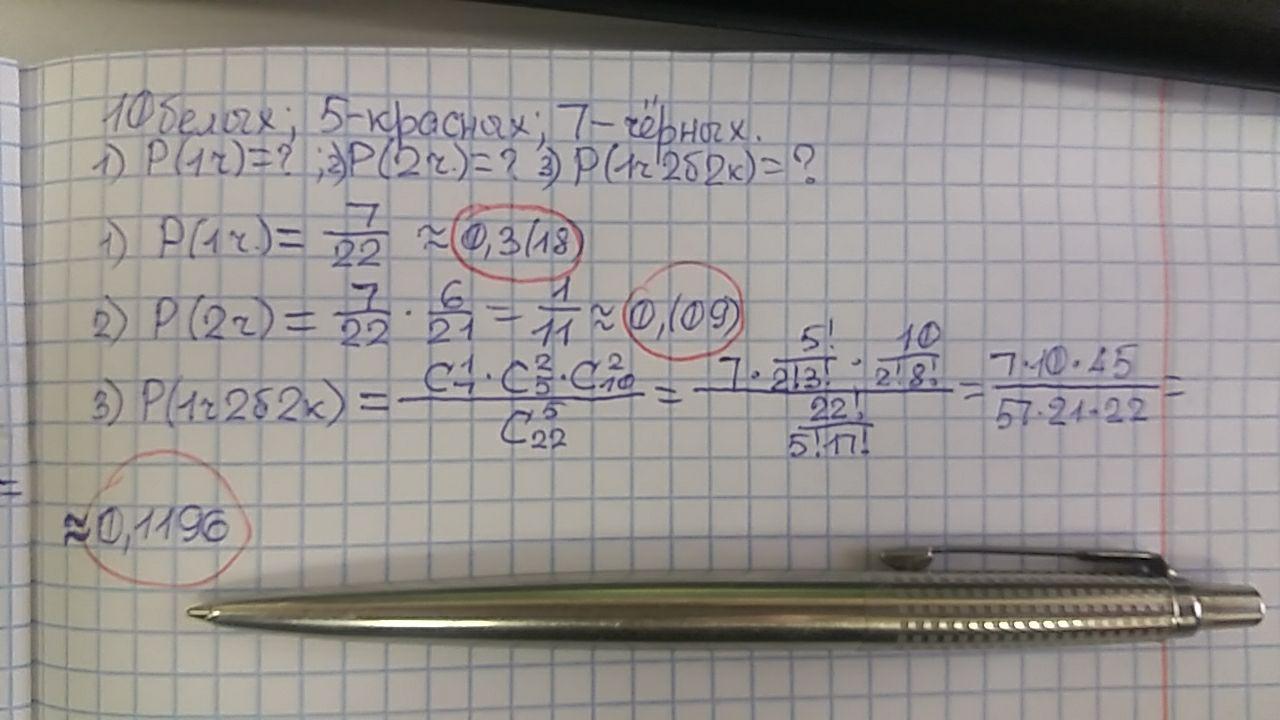 10 белых; 5-красных; 7-чёрных.
1) P(1ч)=? ; 2) P(2ч.)=? 3) P(1ч2б2к)=?
1) P(1ч.) = 7/22 ≈ 0,3(18)
2) P(2ч) = 7/22 · 6/21 = 1/11 ≈ 0,(09)
3) P(1ч2б2к) = (C₇¹ · C₅² · C₁₀²)/C₂₂⁵ = (7 · 5!/(2!3!) · 10/(2!8!))/(22!/(5!17!)) = (7·10·45)/(57·21·22) =
≈ 0,1196
=